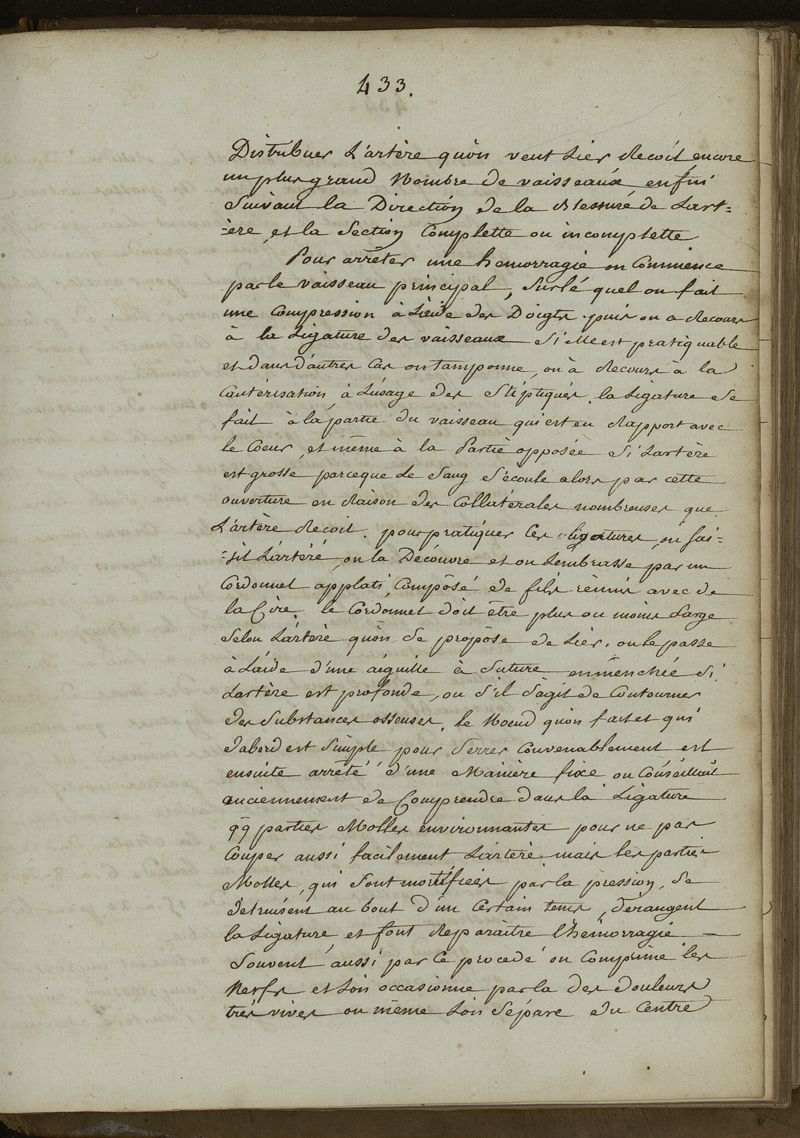 433.
Distribuer L'artère qu'on veut Lier Recoit encore
un plus grand Nombre de vaisseaux, enfin
Suivant la Direction de la Blessure de Lart-
-ère, et la Section Complette ou incomplette
Pour arrêter une hemorragie on Commence
par le vaisseau principal, Surlé quel on fait
une Compression à L'aide des Doigts puis on a Recours
à la Ligature des vaisseaux Si elle est pratiquable
et dans d'autres Cas on tamponne, on à Recours à la
Cautérisation à Lusage des Stiptiques. la Ligature se
fait à la partie du vaisseau qui est en Rapport avec
le Coeur, et même à la Partie opposée Si Lartère
est grosse parceque Le Sang S'écoule alors par cette
ouverture en Raison des Collatérales nombreuses que
L'artère Recoit. pour pratiquer Ces ligatures, on sai-
-sit Lartère, on la Découvre et on Lembrasse par un
Cordonnet applati, Composé de fils réunis avec de
la Cire. le Cordonnet doit etre plus ou moins Large
Selon Lartère qu'on Se propose de Lier. on le passe
à Laide d'une aiguille à Suture enmenchée Si
Lartère est profonde, ou S'il S'agit de Contourner
des Substances osseuses. le Noeud qu'on fait et qui
d'abord est Simple pour Serrer Convenablement est
ensuite arrêté d'une Manière fixe on Conseillait
anciennement de Comprendre dans la Ligature
qq parties Molles environnantes pour ne pas
Couper aussi facilement Lartère mais les parties
Molles, qui Sont mortifiées par la pression, Se
Detruisent au bout d'un Certain tems, dérangent
la Ligature et font Reparaitre l'hémorragie —
Souvent aussi par Ce procedé on Comprime les
Nerfs et Lon occasionne par la des douleurs
très vives ou même Lon Sépare du Centre